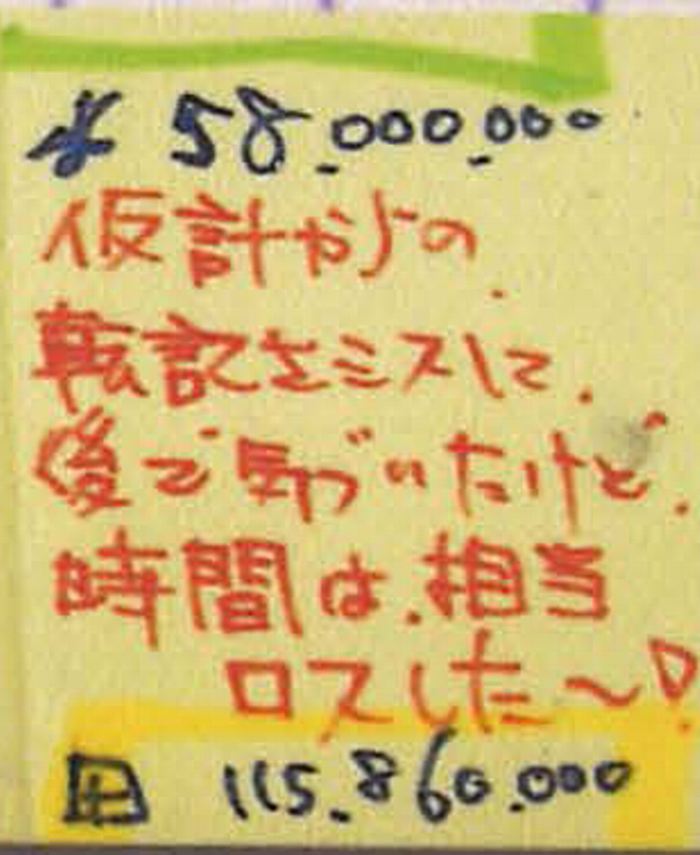 ¥ 58.000.000
仮計からの.
転記をミスして.
後で気づいたけど.
時間は.相当
ロスした〜!
田 115.860.000